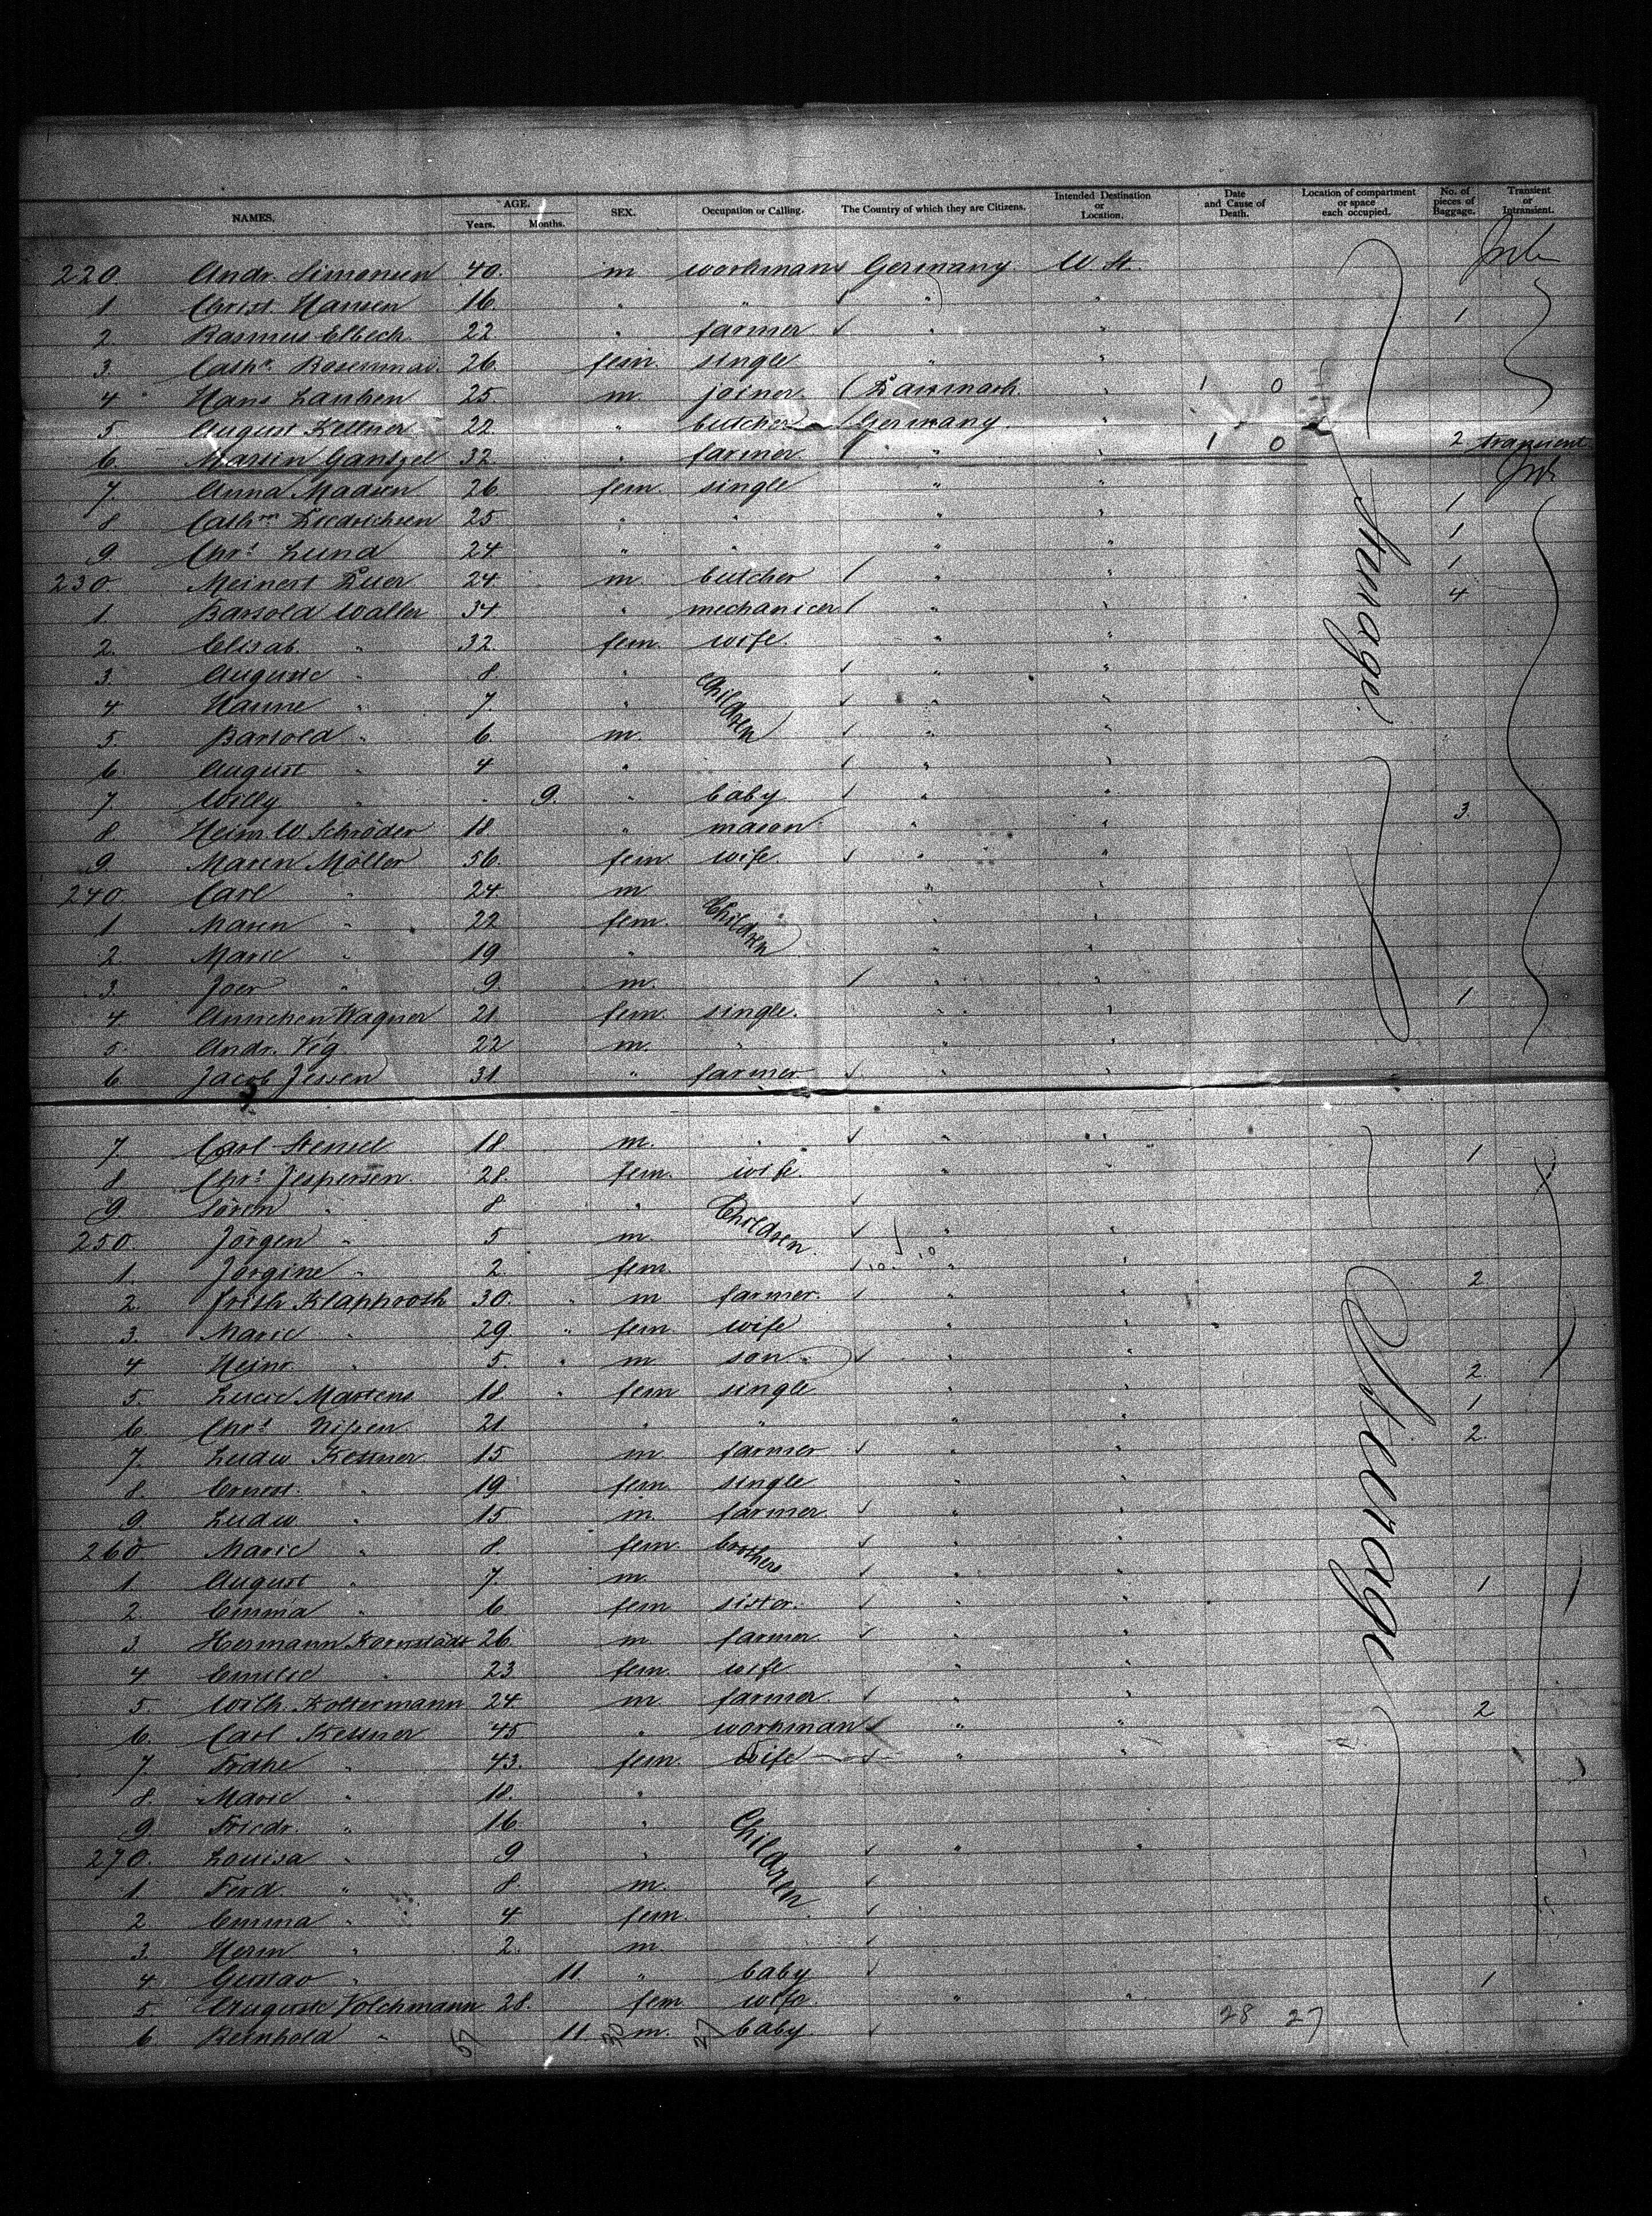 NAMES. AGE. Years. Months. SEX. Occupation or Calling. The Country of which they are Citizens. Intended Destination or Location. Date and Cause of Death. Location of compartment or space each occupied. No. of pieces of Baggage. Transient or Intransient.
220. Andr. Simonsen 40. m workman Germany. U St.
1. Christ. Hansen 16. " " " "
2. Rasmus Elbech. 22. " farmer " " 1
3. Cath. 26. fem. single " "
4. Hans Lauben 25 m. joiner. Danmark. " 1 0
5 August Kellner 22. " butcher Germany "
6. Martin Gantzel 32. " farmer " " 1 0 2 transient
7. Anna Madsen 26. fem. single " "
8 Cathn Diedrichsen 25 " " " " 1
9. Chr. Lund 24. " " " " 1
230. Meinert Duer 24. m. butcher " " 1
1. Barsold Waller 34. " mechanicer " " 4
2. Elisab. " 32. fem. wife. " "
3. Auguste " 8. " Children " "
4. Hanne " 7. " " "
5. Barsold " 6. m. " "
6. August " 4 " " "
7 Willy " 9. " baby " "
8 Heinr. W. Schröder 18. " mason " " 3.
9. Maren Möller 56. fem. wife " "
240. Carl " 24. m Children " "
1 Maren " 22 fem. " "
2. Marie " 19 " " "
3. Joer " 9. m. " "
4. Annchen Wagner 21 fem. single. " " 1
5. Andr. Veg 22 m. " " "
6 Jacob Jessen 31. " farmer " "
Steerage
7. Carl Stensel 18. m. " " "
8 Chr. Jespersen 28. fem. wife. " " 1
9. Sören " 8 " Children
250. Jörgen " 5 m " "
1. Jörgine " 2. fem. " "
2. Frith. Klapproth 30. m farmer. " " 2
3. Marie " 29 " fem. wife " "
4 Heinr. " 5. " m son " "
5. Lucie Martens 18. " fem single " " 2.
6 Chr. Nissen. 21. " " " " 1
7. Ludw Kessner 15 m. farmer " " 2.
8. Ernest. " 19 fem. single " "
9 Ludw. " 15 m. farmer. " "
260. Marie " 8. fem. brothers " "
1 August " 7. m. " "
2. Emma " 6 fem sister. " " 1
3. Hermann Kornstädt 26. m. farmer. " "
4 Emilie " 23 fem. wife " "
5 Wilh. Koltermann 24. m. farmer. " "
6. Carl Kessner 45 " workman " " 2
7. Frdke " 43. fem. wife " "
8. Marie " 18. "
9 Friedr. " 16 " Children
270. Louisa " 9 " " "
1. Ferd. " 8. m.
2 Emma " 4. fem.
3. Herm " 2. m.
4 Gustav " 11 " baby
5 Auguste Volchmann 28. fem. wife. " " 1
6. Reinhold " 11 m. baby.
57 30 27 28 27
Steerage